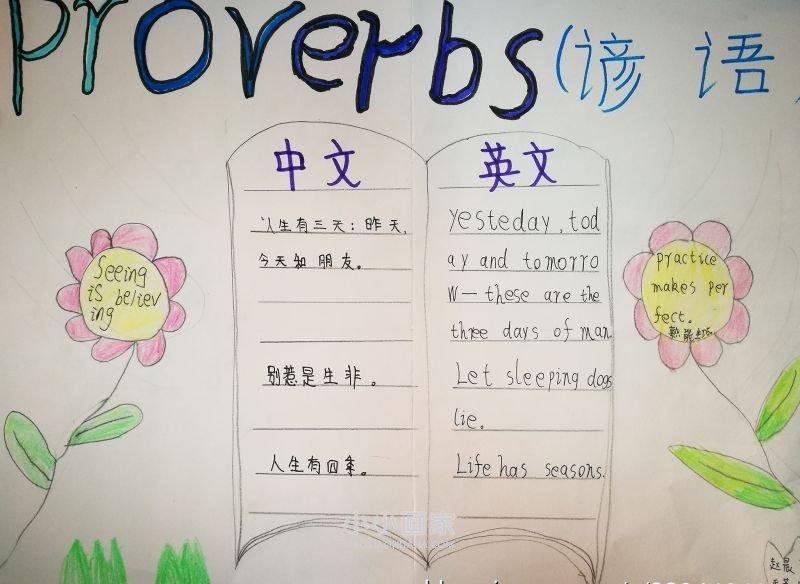 Proverbs (谚 语)
中文
人生有三天：昨天,
今天和朋友。
别惹是生非。
人生有四季。
英文
yesteday, tod
ay and tomorro
w— these are the
three days of man.
Let sleeping dogs
lie.
Life has seasons.
Seeing
is believ
ing
practice
makes per
fect.
熟能生巧
小小画家
赵晨